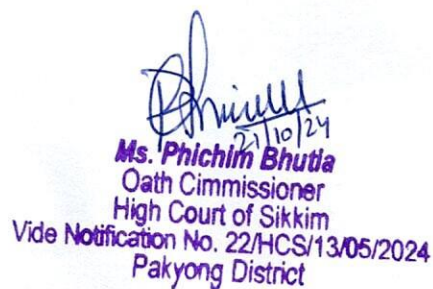 21/10/24
Ms. Phichim Bhutia
Oath Cimmissioner
High Court of Sikkim
Vide Notification No. 22/HCS/13/05/2024
Pakyong District